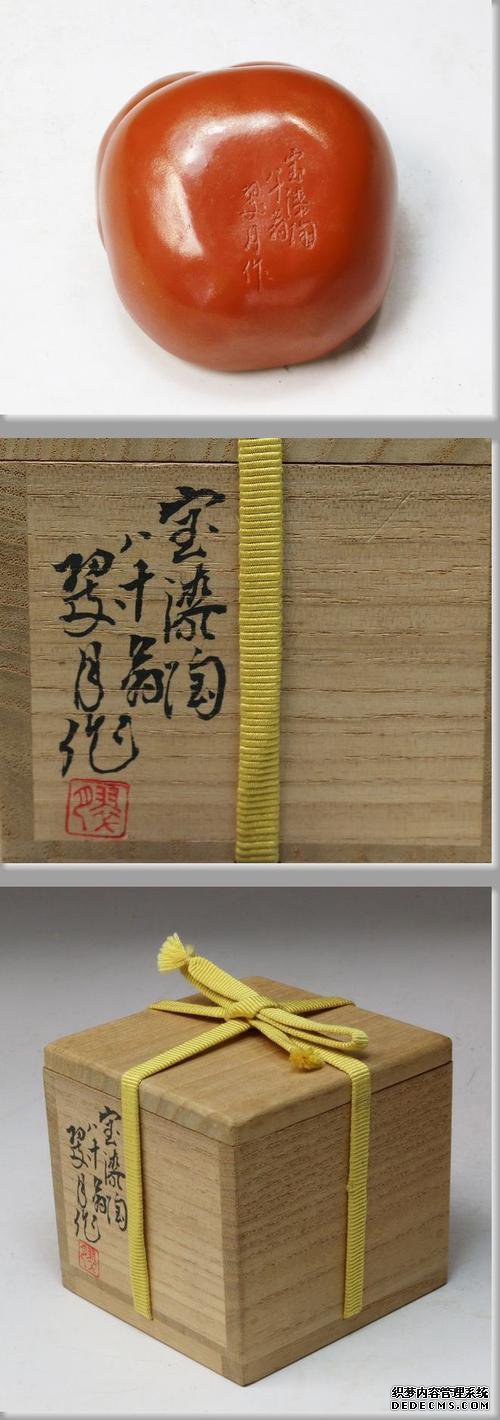 宝漆陶
八十翁
翠月作
宝漆陶
八十翁
翠月作
翠月
宝漆陶
八十翁
翠月作
翠月
织梦内容管理系统
DEDECMS.COM